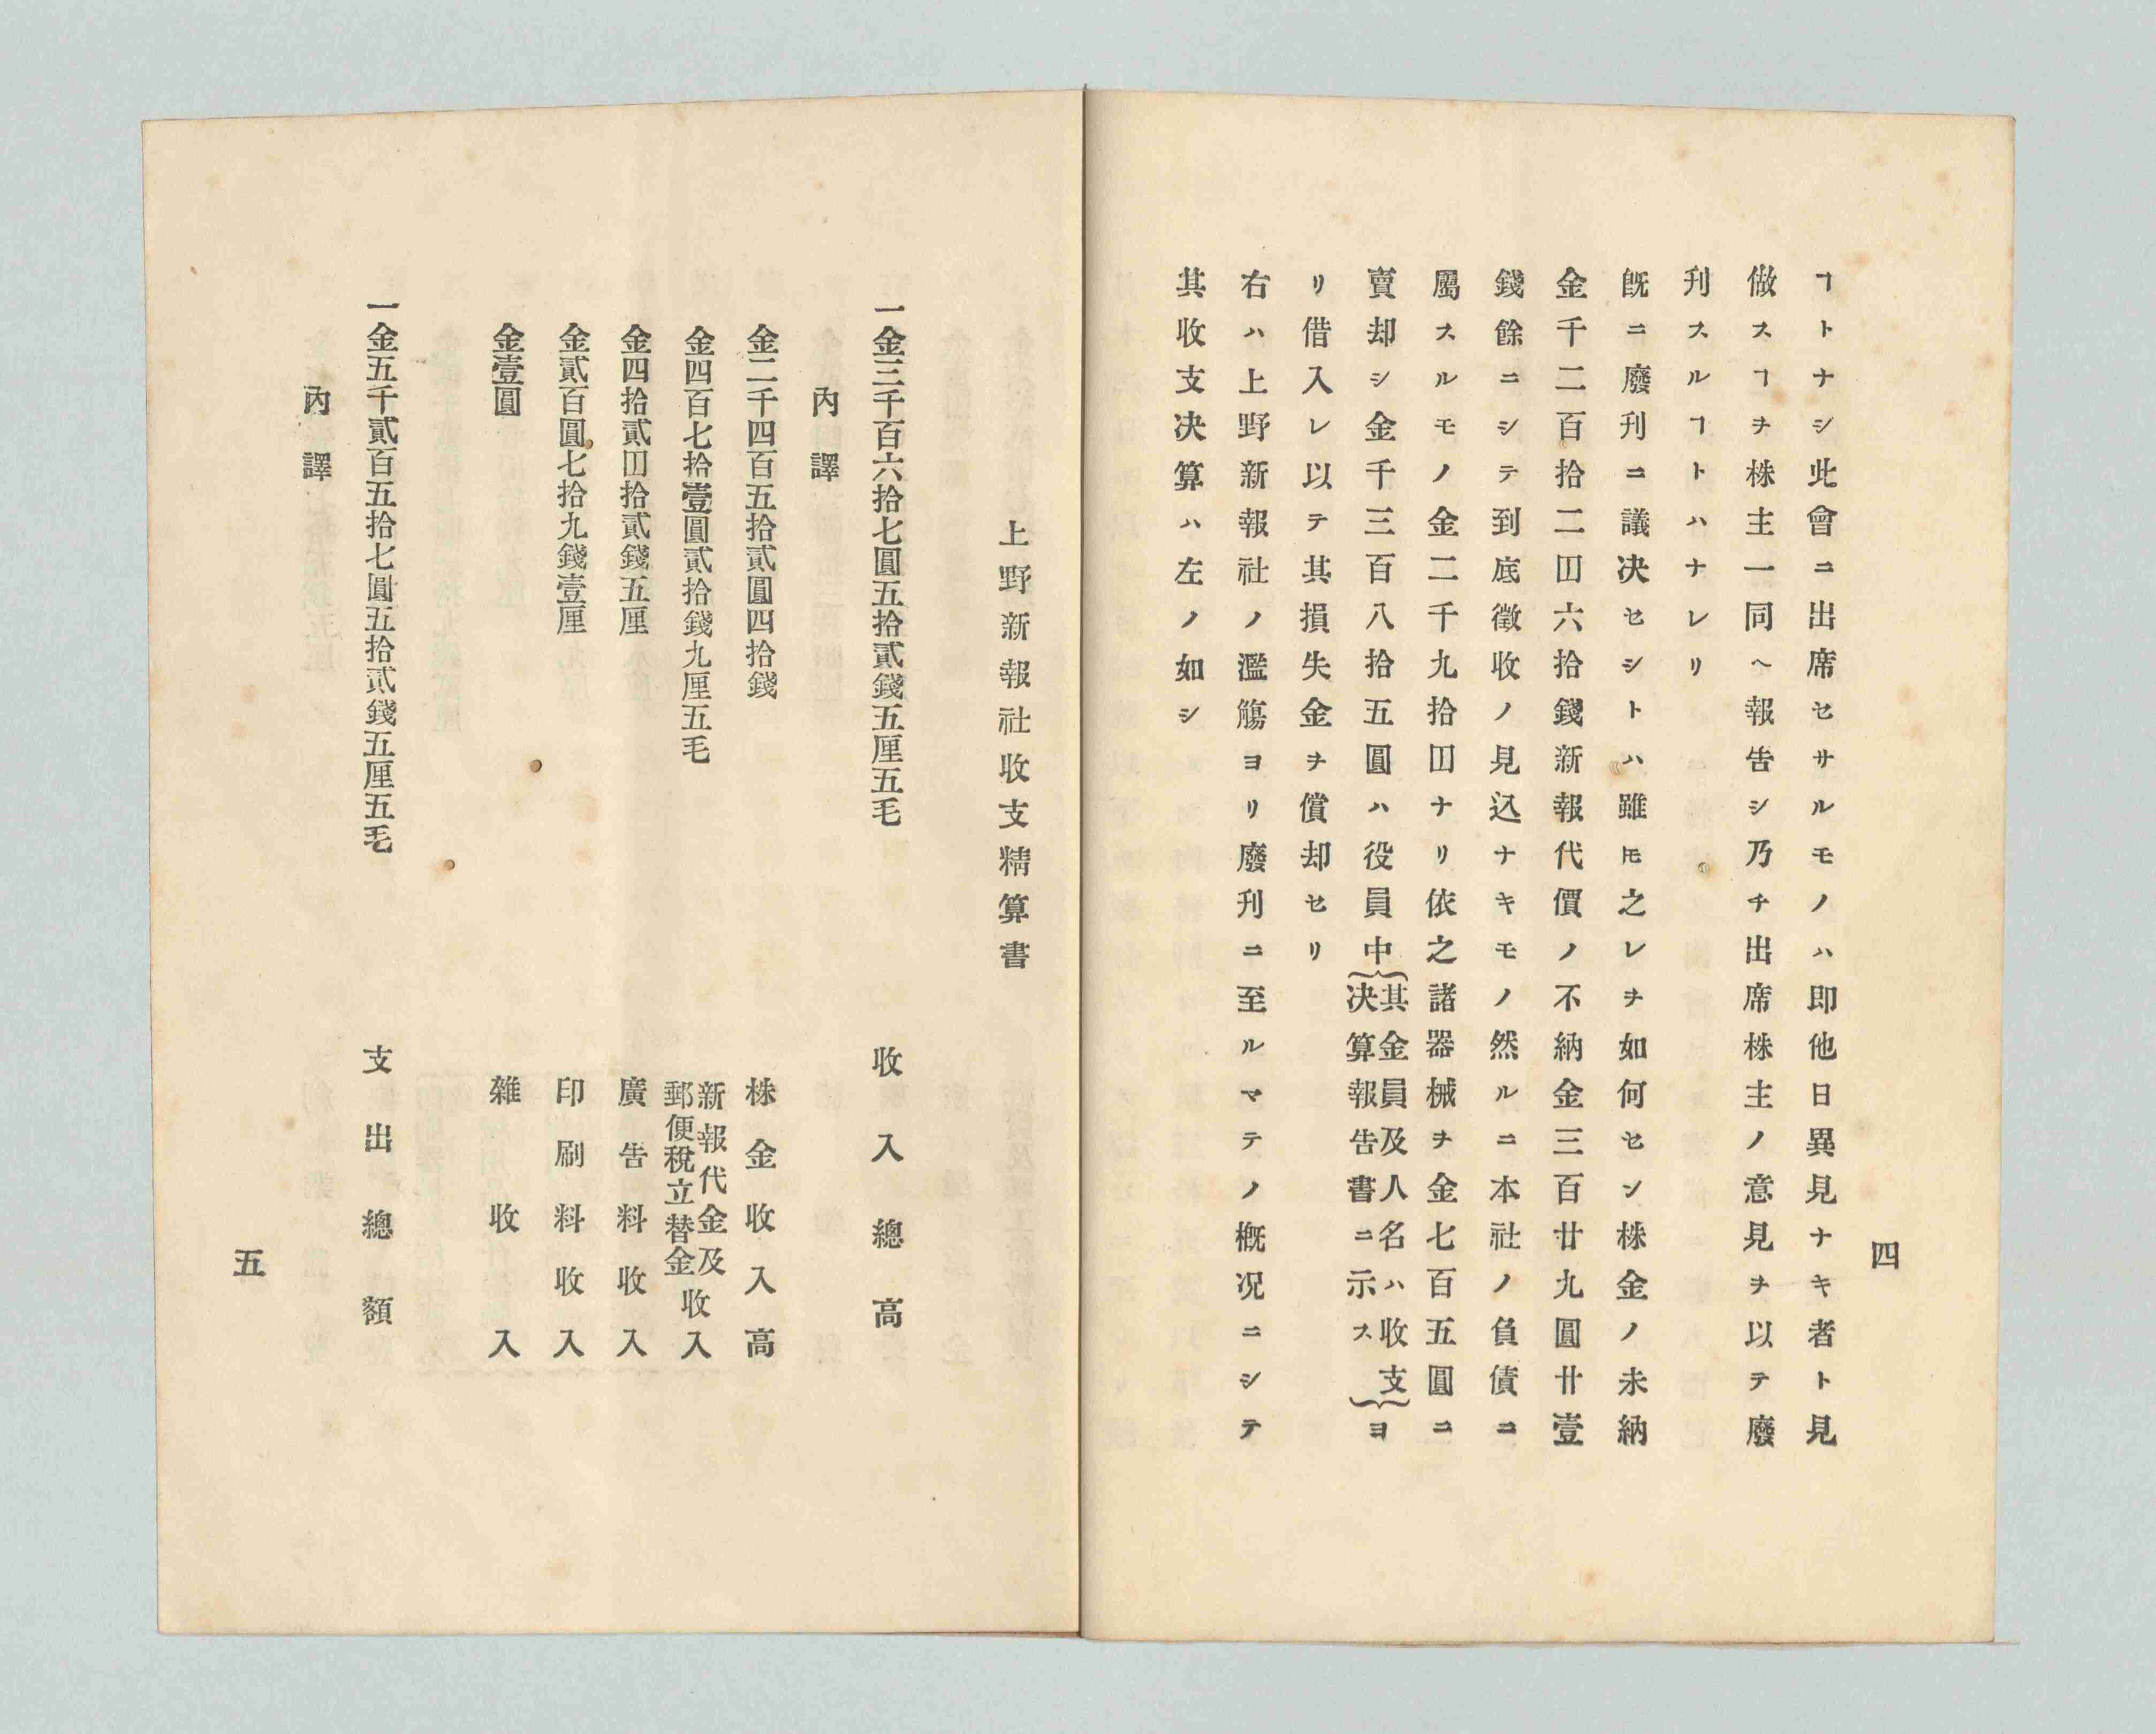 四
ヿトナシ此會ニ出席セサルモノハ即他日異見ナキ者ト見
做スヿヲ株主一同ヘ報告シ乃チ出席株主ノ意見ヲ以テ廢
刋スルヿトハナレリ
既ニ廢刋ニ議决セシトハ雖𪜈之レヲ如何セン株金ノ未納
金千二百拾二囗六拾錢新報代價ノ不納金三百廿九圓廿壹
錢餘ニシテ到底徵收ノ見込ナキモノ然ルニ本社ノ負債ニ
屬スルモノ金二千九拾囗ナリ依之諸器械ヲ金七百五圓ニ
賣却シ金千三百八拾五圓ハ役員中{其金員及人名ハ收支
决算報告書ニ示ス}ヨ
リ借入レ以テ其損失金ヲ償却セリ
右ハ上野新報社ノ濫觴ヨリ廢刋ニ至ルマテノ槪況ニシテ
其收支决算ハ左ノ如シ
上野新報社收支精算書
一金三千百六拾七圓五拾貳錢五厘五毛 收入總高
內譯
金二千四百五拾貳圓四拾錢 株金收入高
金四百七拾壹圓貳拾錢九厘五毛 新報代金及郵便稅立替金收入
金四拾貳囗拾貳錢五厘 廣告料收入
金貳百圓七拾九錢壹厘 印刷料收入
金壹圓 雜收入
一金五千貳百五拾七圓五拾貳錢五厘五毛 支出總額
內譯
五